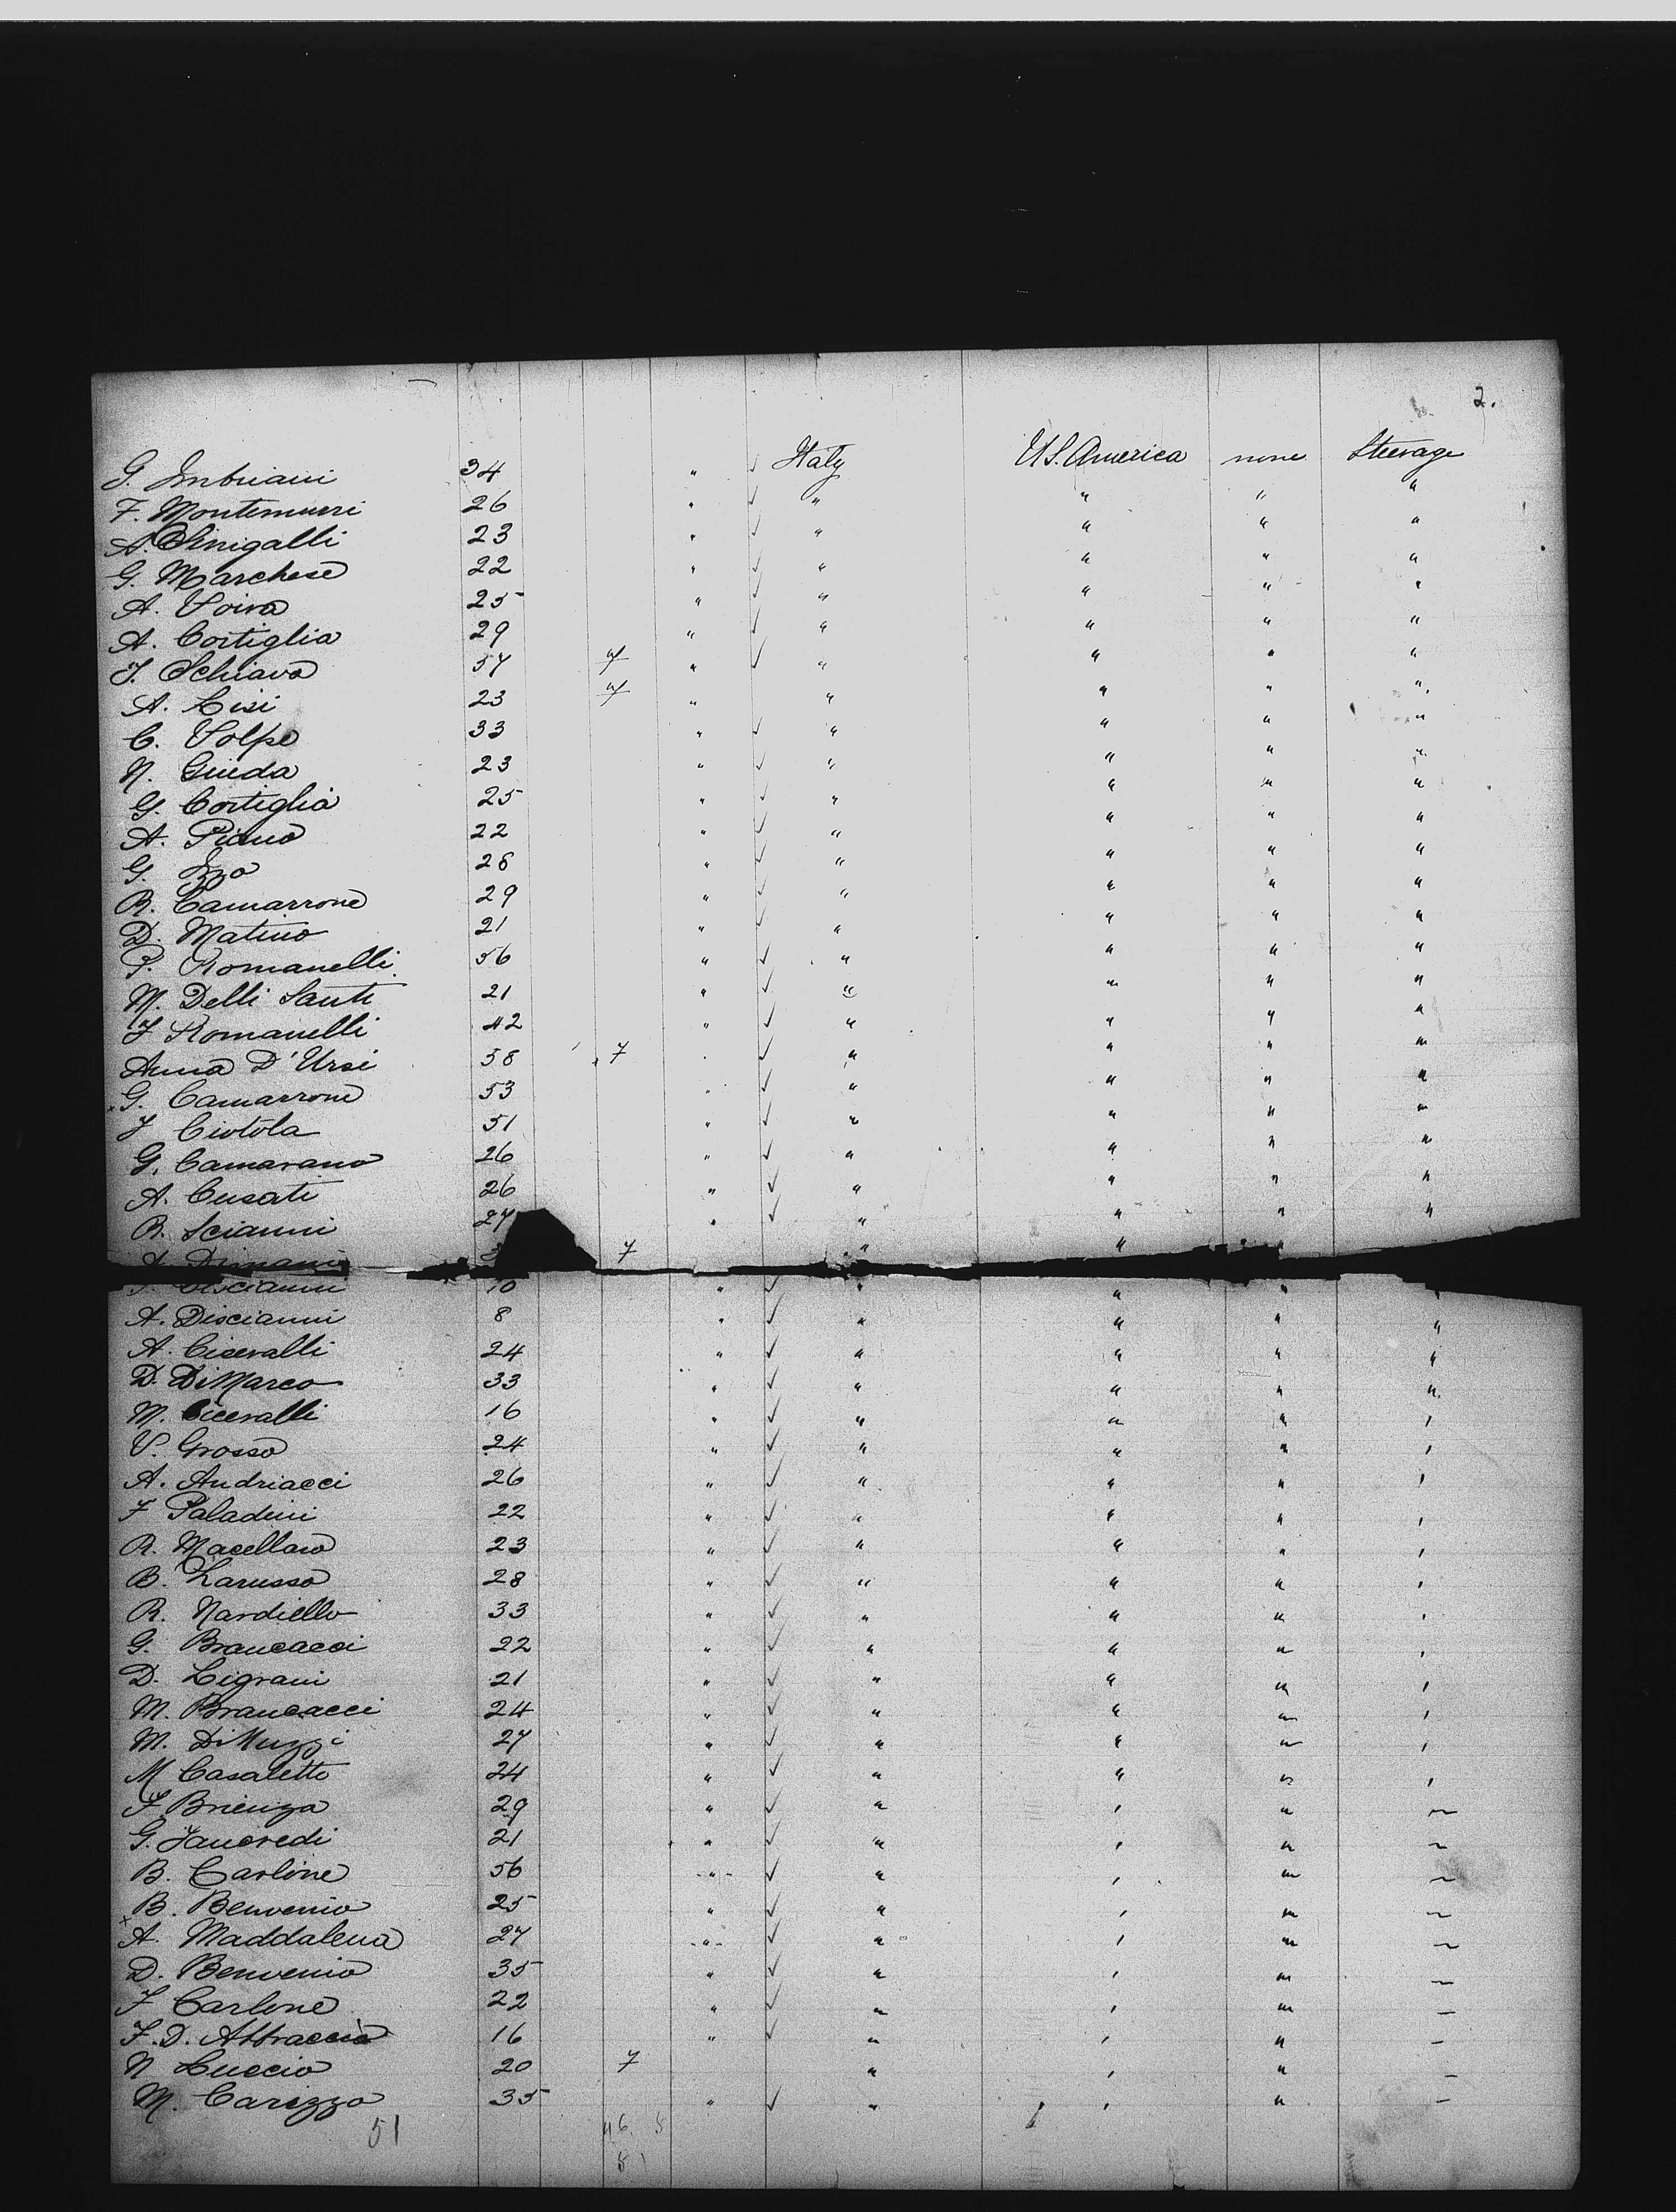 2.
G. Imbriani 34 " ✓ Italy U.S. America none Steerage
F. Montemurri 26 " ✓ " " " "
A. Sinigalli 23 " ✓ " " " "
G. Marchese 22 " ✓ " " " "
A. Voira 25 " ✓ " " " "
A. Cortiglia 29 " ✓ " " " "
F. Schiavo 57 " ✓ " " " "
A. Lisi 23 " " " " "
C. Volpe 33 " ✓ " " " "
N. Guida 23 " ✓ " " " "
G. Cortiglia 25 " ✓ " " " "
A. Piano 22 " ✓ " " " "
G. Izzo 28 " ✓ " " " "
R. Camarrone 29 " ✓ " " " "
D. Matino 21 " ✓ " " " "
P. Romanelli 56 " ✓ " " " "
M. Delli Santi 21 " ✓ " " " "
F Romanelli 42 " ✓ " " " "
Anna D'Ursi 38 7 " ✓ " " " "
G. Camarrone 53 " ✓ " " " "
F Ciotola 51 " ✓ " " " "
G. Camarano 26 " ✓ " " " "
A. Cusati 26 " ✓ " " " "
B. Scianni 27 " ✓ " " " "
7 " " "
Discianni 10 " ✓ " " " "
A. Discianni 8 " ✓ " " " "
A. Ciceralli 24 " ✓ " " " "
D. DiMarco 33 " ✓ " " " "
M. Ciceralli 16 " ✓ " " " "
V. Grosso 24 " ✓ " " " "
A. Andriacci 26 " ✓ " " " "
F Paladini 22 " ✓ " " " "
R. Macellaro 23 " ✓ " " " "
B. Larusso 28 " ✓ " " " "
R. Nardiello 33 " ✓ " " " "
G. Brancacci 22 " ✓ " " " "
D. Ligrani 21 " ✓ " " " "
M. Brancacci 24 " ✓ " " " "
M. DiMuzzi 27 " ✓ " " " "
M Casaletto 24 " ✓ " " " "
F Brienza 29 " ✓ " " " "
G. Tancredi 21 " ✓ " " " "
B. Carlone 56 " ✓ " " " "
B. Benvenio 25 " ✓ " " " "
A. Maddalena 27 " ✓ " " " "
D. Benvenio 35 " ✓ " " " "
F Carlone 22 " ✓ " " " "
F. D. Abbraccio 16 " ✓ " " " "
N Luccio 20 7 " " " "
M. Carizzo 35 " ✓ " " " "
51